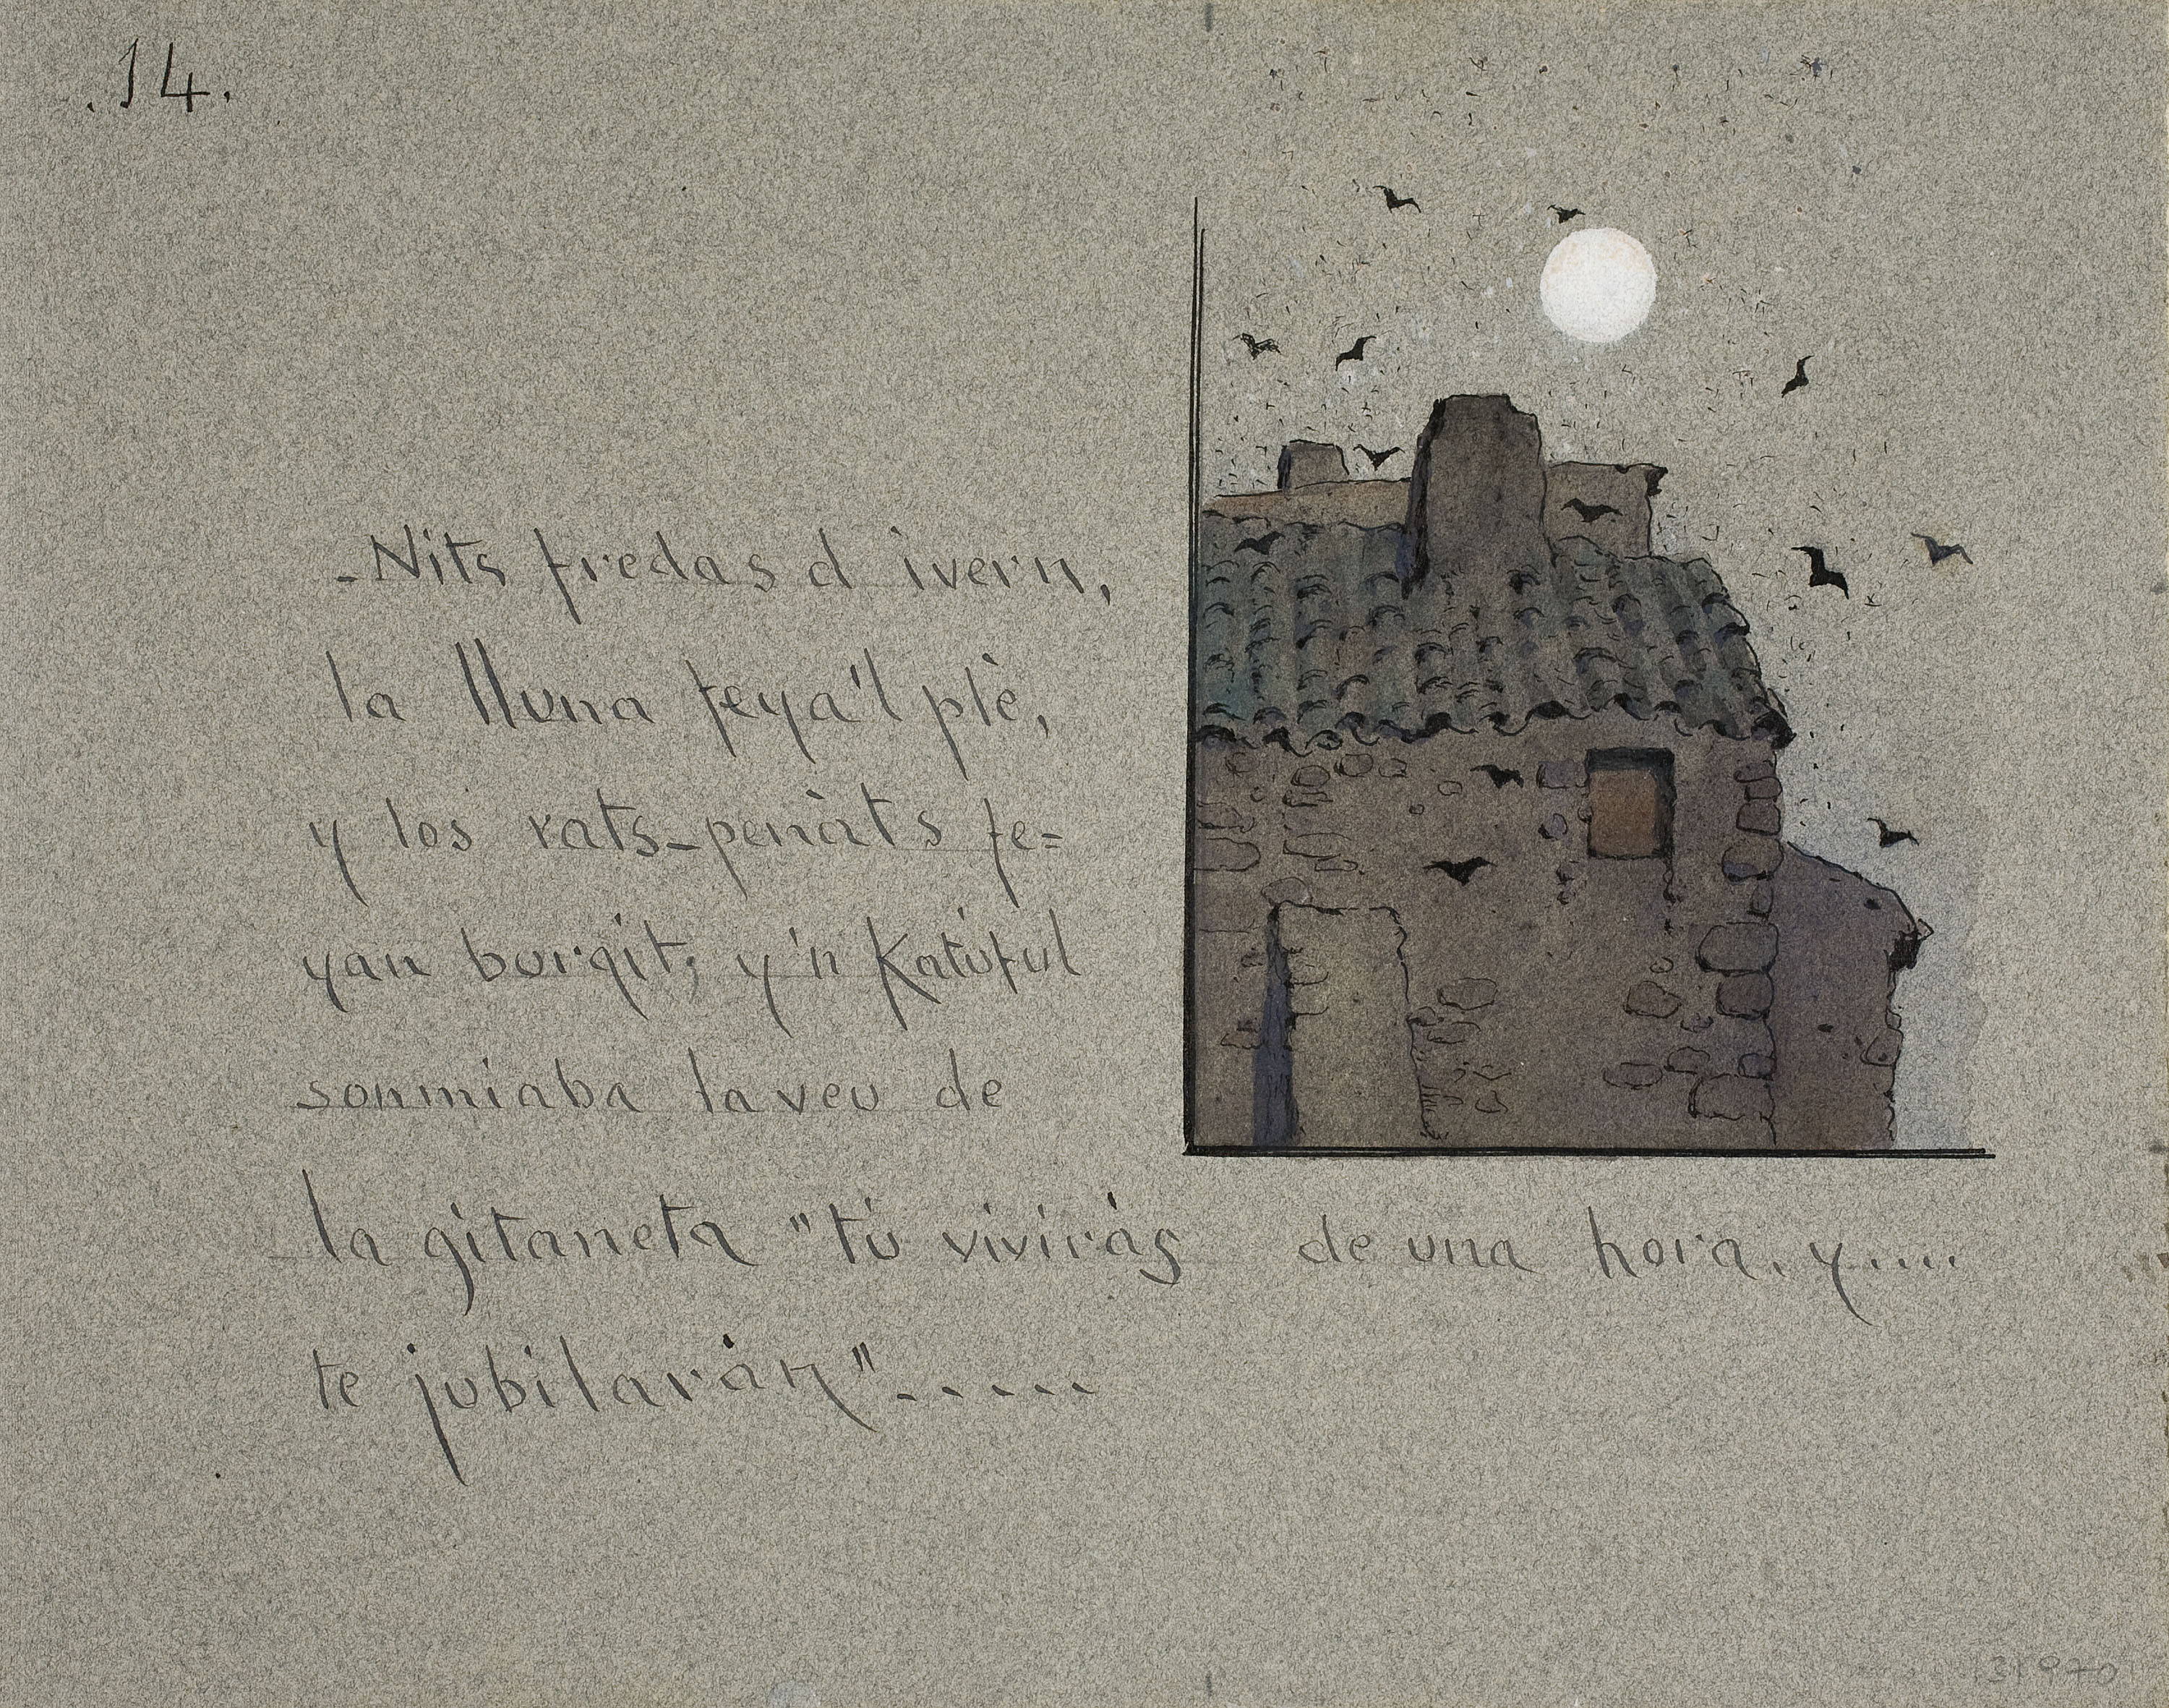 .14.
-Nits fredas d ivern,
la lluna feya'l plè,
y los rats-penàts fe=
yan burgit; y'n Katúful
sonmiaba la veu de
la gitaneta "tú vivirás de una hora, y....
te jubilarán".....
31970